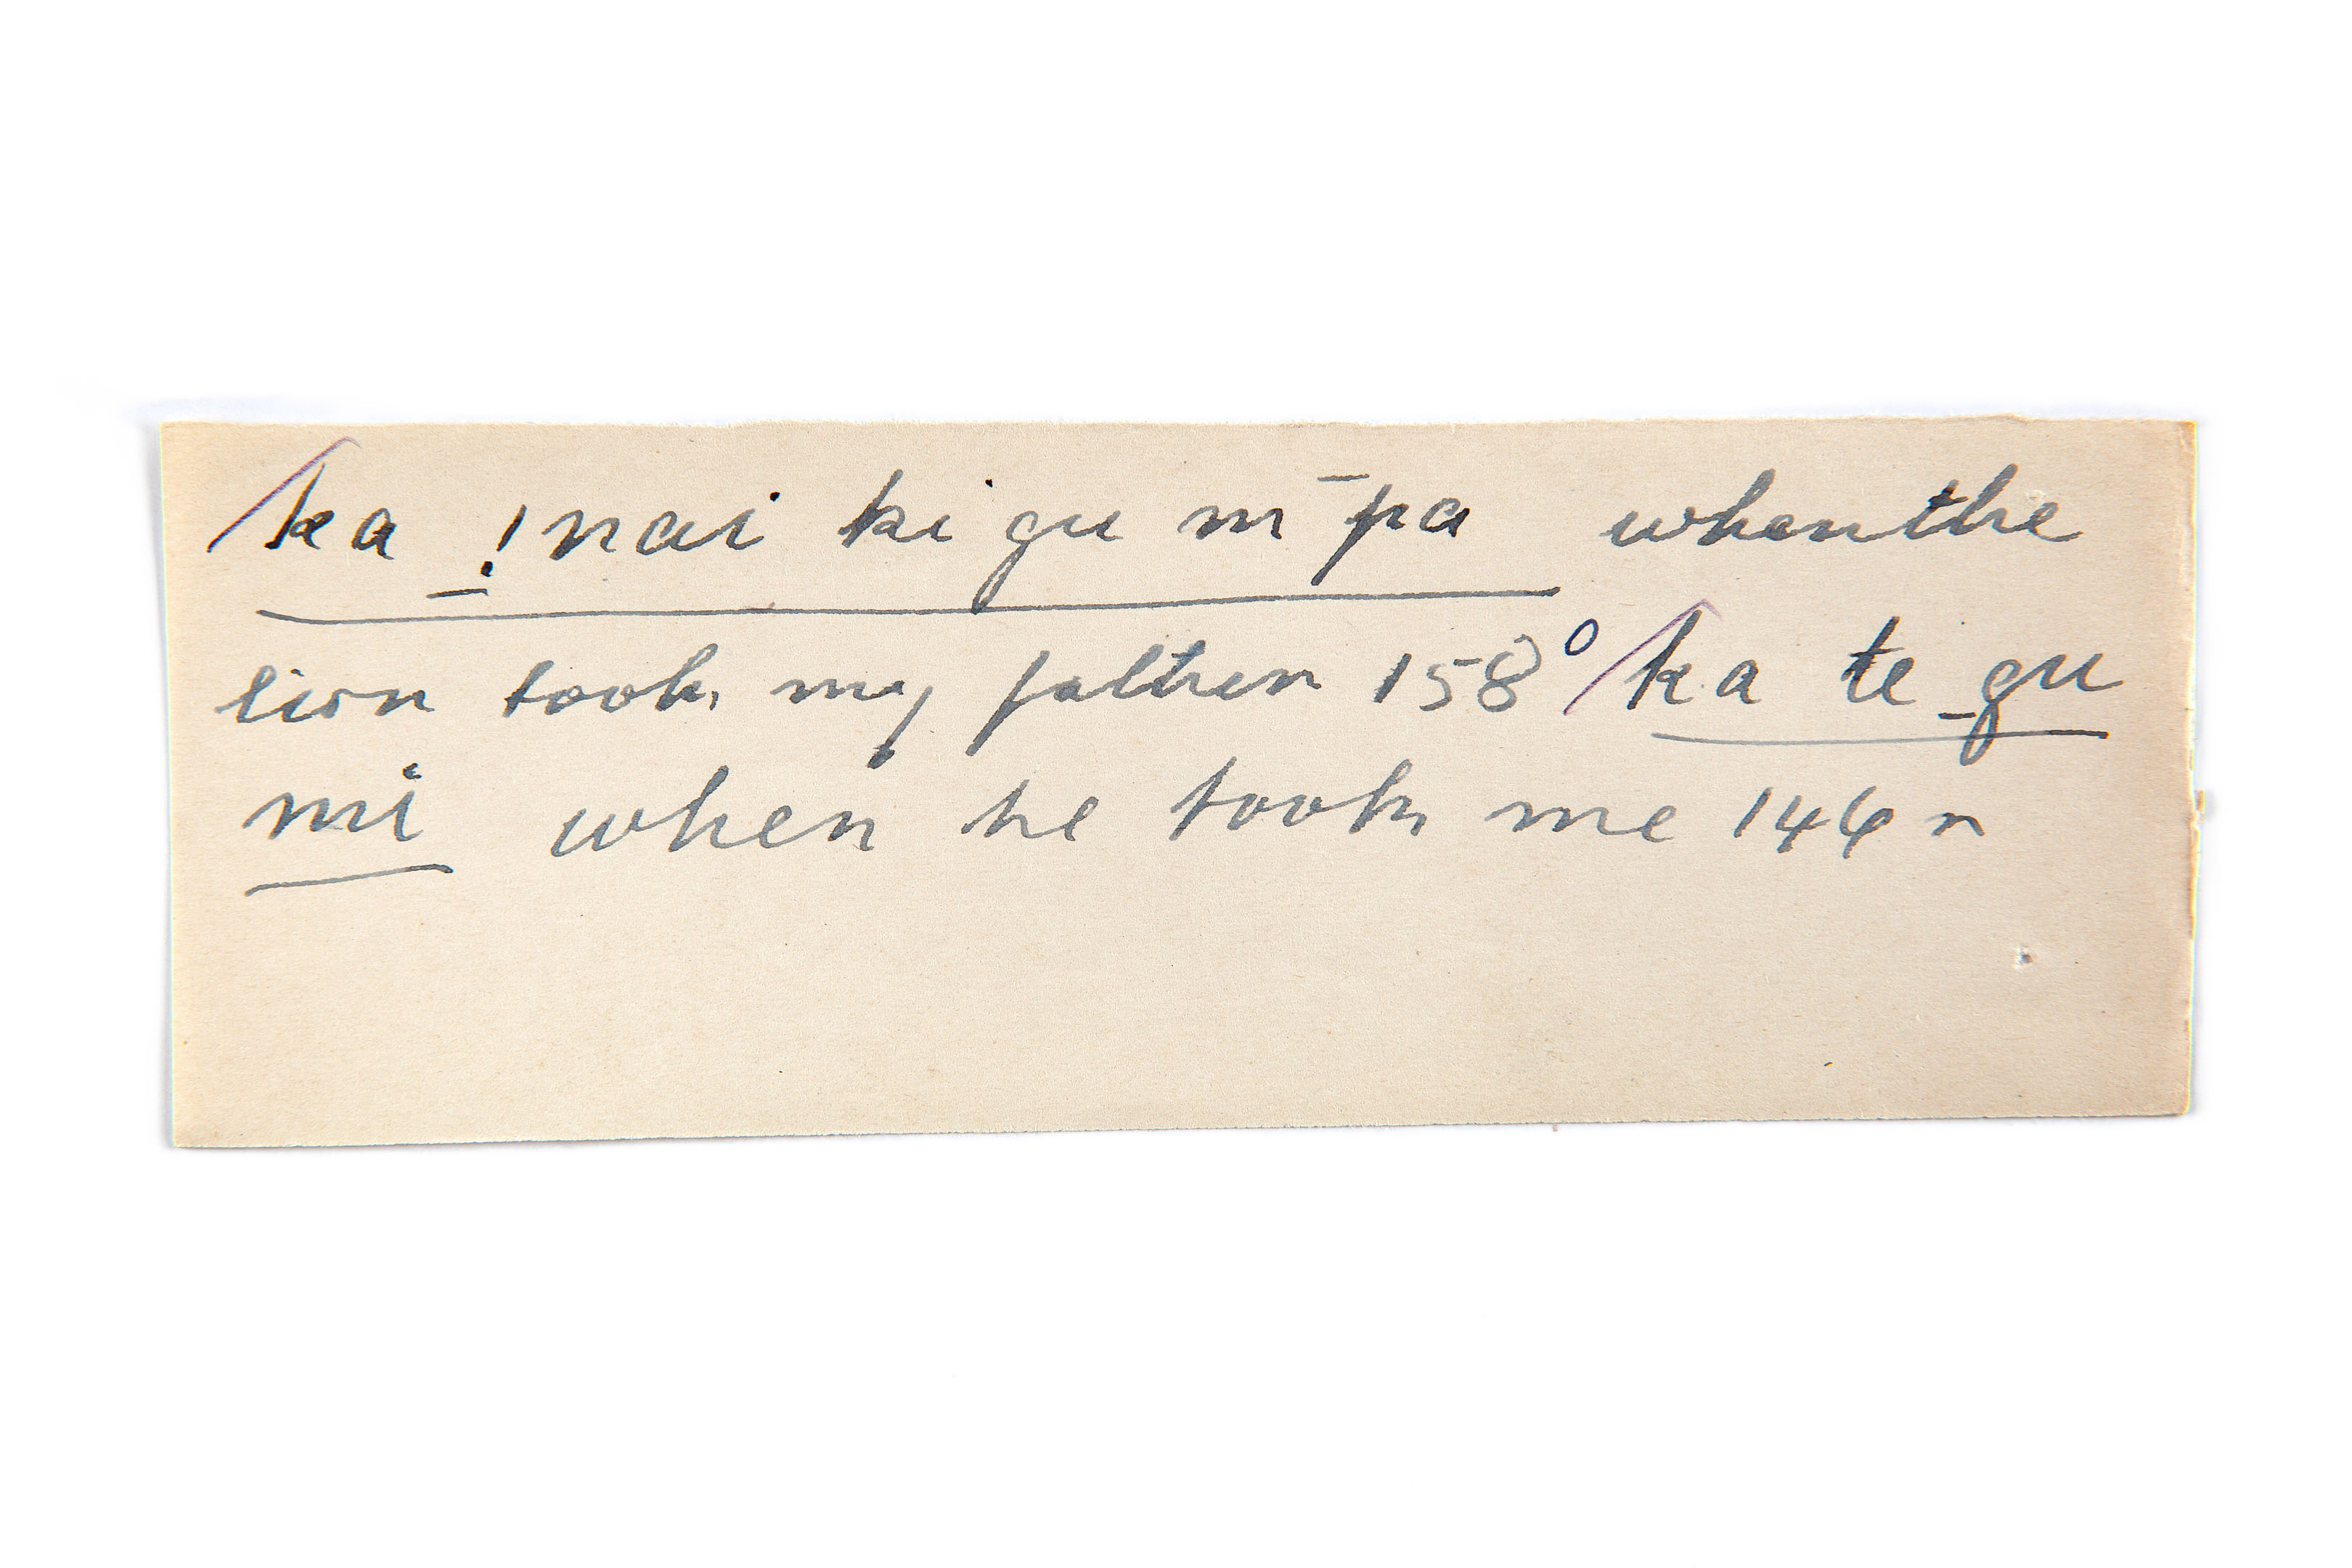 ka _!nai ki gu m̄ pa whenthe
lion took my father 158° ka te _gu
mi when he took me 146 r